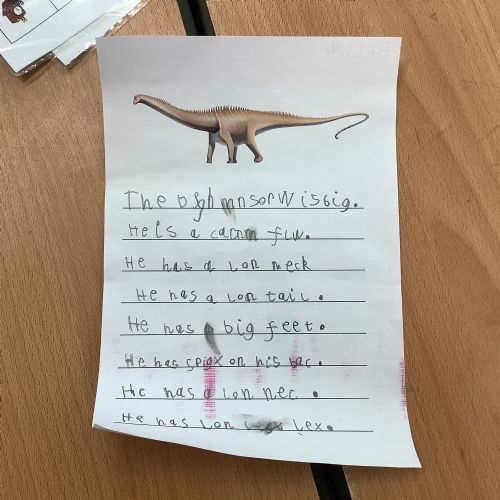 The is big.
He is a
He has a lon neck
He has a lon tail.
He has big feet.
He has spigx on his bac.
He has a lon nec.
He has lon lex.